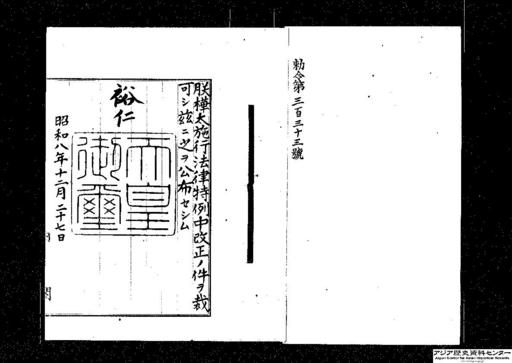 勅令第三百三十三號
朕樺太施行法律特例中改正ノ件ヲ裁
可シ茲ニ之ヲ公布セシム
裕仁
天皇
御璽
昭和八年十二月二十七日
アジア歴史資料センター
Japan Center for Asian Historical Records